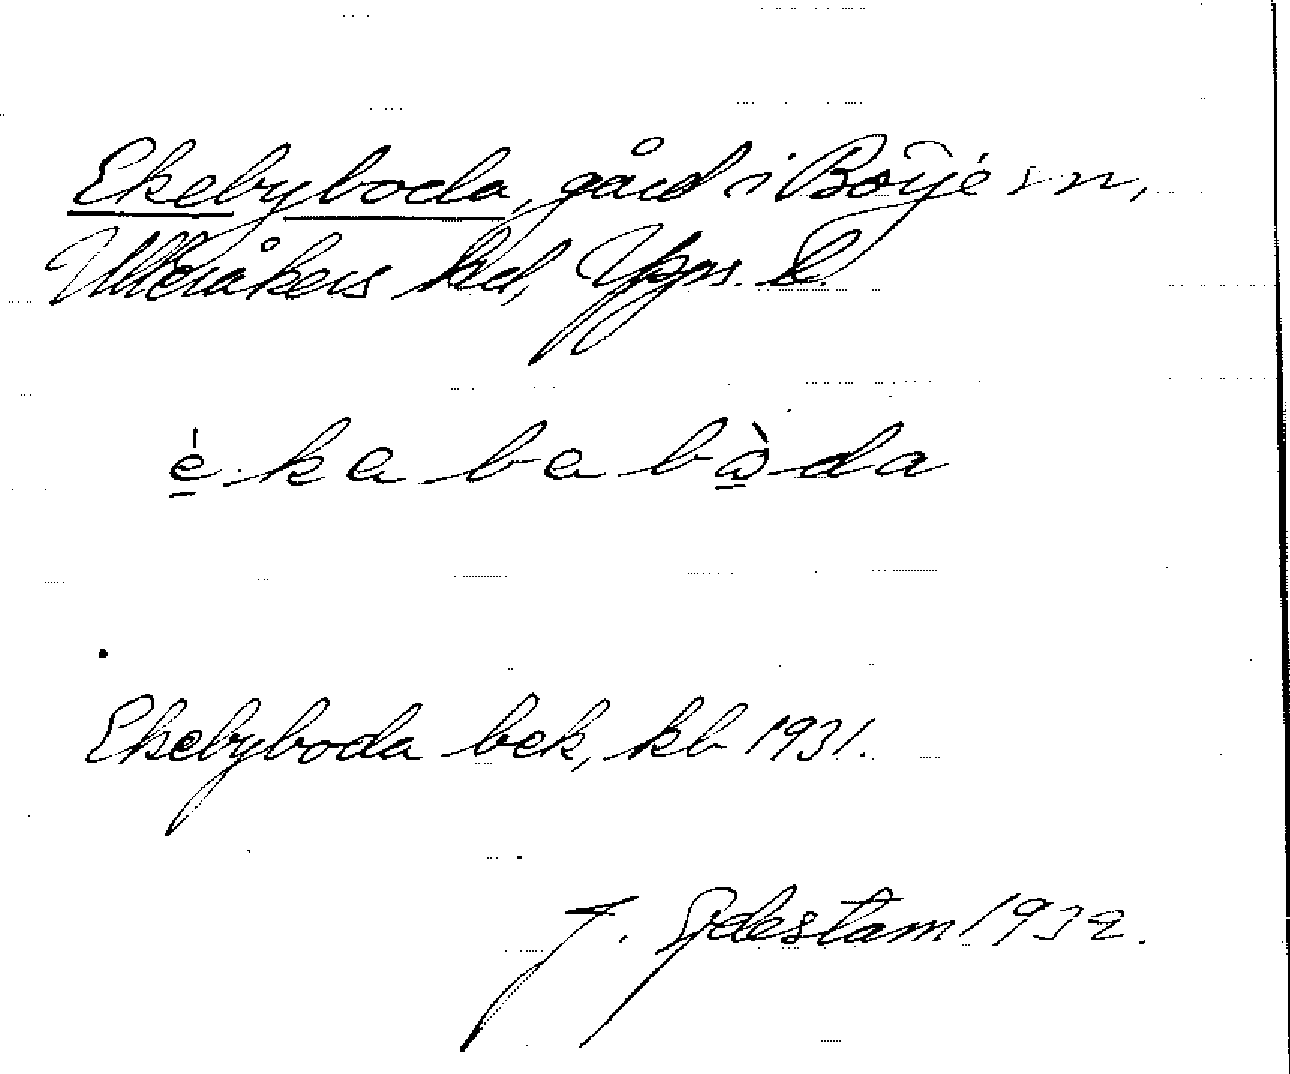 Ekebyboda, gård i Börje sn,
Ulleråkers hd, Upps. l.
è ka ba bò da
Ekebyboda bek, kb 1931.
J. Sydestam 1932.